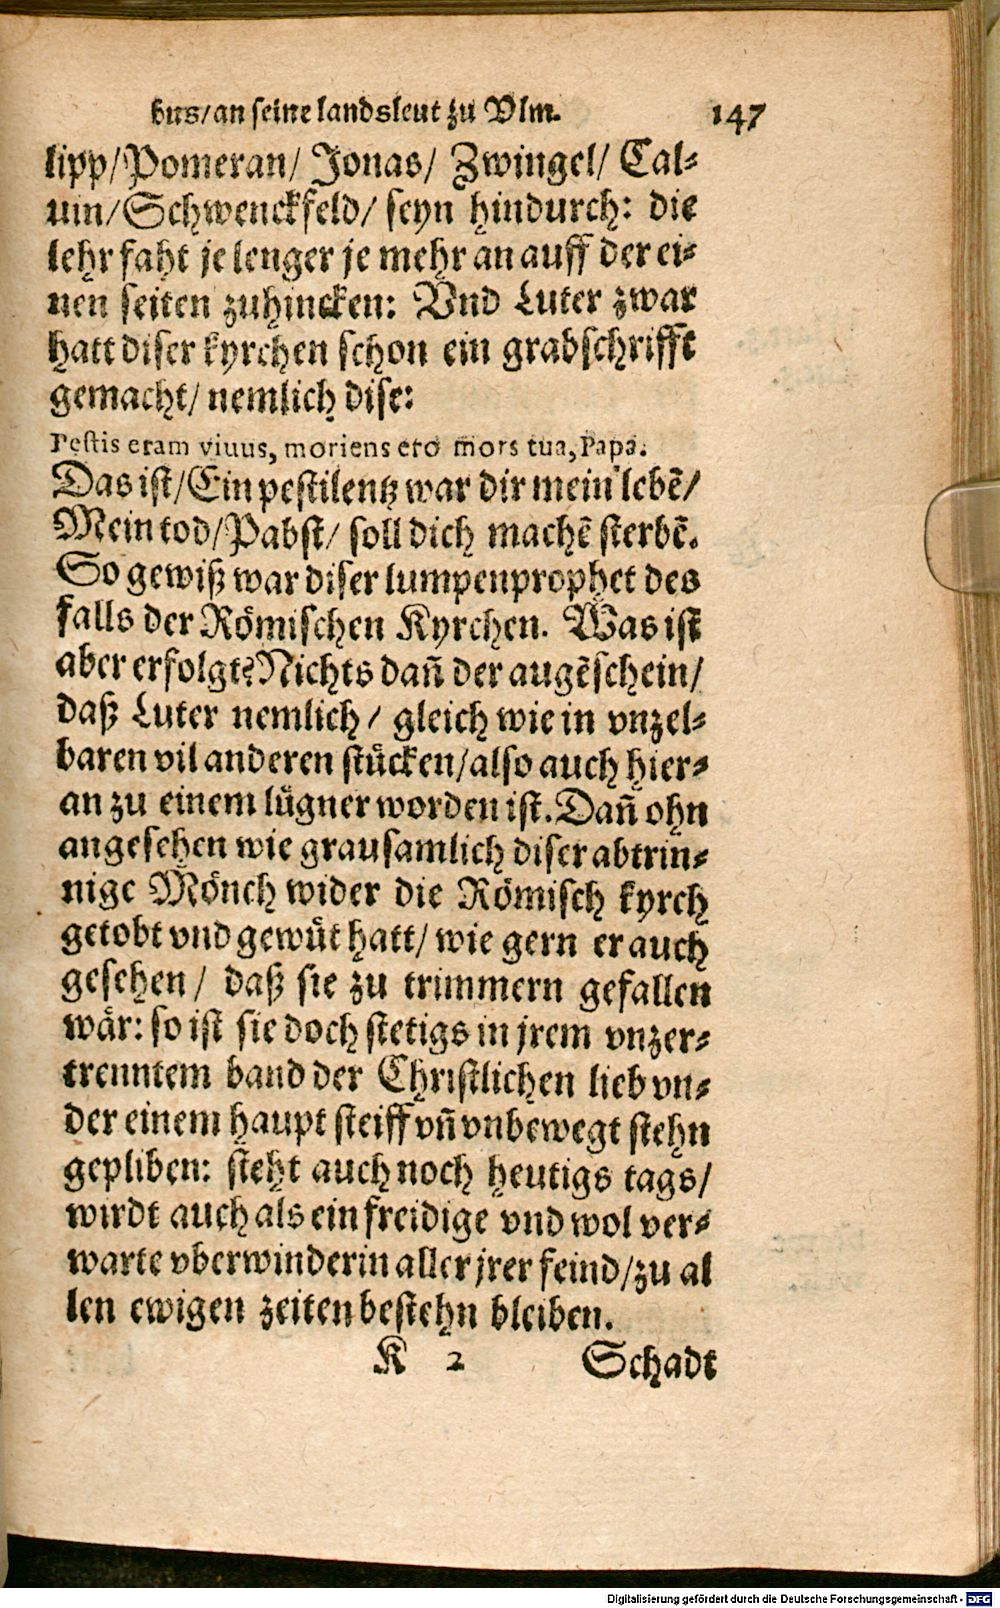 bus/an seine landsleut zu Vlm. 147
lipp/Pomeran/ Jonas/ Zwingel/ Cal⸗
uin/Schwenckfeld/ seyn hindurch: die
lehr faht je lenger je mehr an auff der ei⸗
nen seiten zuhincken: Vnd Luter zwar
hatt diser kyrchen schon ein grabschrifft
gemacht/ nemlich dise:
Pestis eram viuus, moriens ero mors tua, Papa.
Das ist/Ein pestilentz war dir mein lebẽ/
Mein tod/Pabst/ soll dich machẽ sterbẽ.
So gewiß war diser lumpenprophet des
falls der Römischen Kyrchen. Was ist
aber erfolgt? Nichts dañ der augẽschein/
daß Luter nemlich/ gleich wie in vnzel⸗
baren vil anderen stücken/also auch hier⸗
an zu einem lügner worden ist. Dañ ohn
angesehen wie grausamlich diser abtrin⸗
nige Mönch wider die Römisch kyrch
getobt vnd gewüt hatt/ wie gern er auch
gesehen/ daß sie zu trimmern gefallen
wär: so ist sie doch stetigs in jrem vnzer⸗
trenntem band der Christlichen lieb vn⸗
der einem haupt steiff vñ vnbewegt stehn
gepliben: steht auch noch heutigs tags/
wirdt auch als ein freidige vnd wol ver⸗
warte vberwinderin aller jrer feind/zu al
len ewigen zeiten bestehn bleiben.
K 2 Schadt
Digitalisierung gefördert durch die Deutsche Forschungsgemeinschaft - DFG